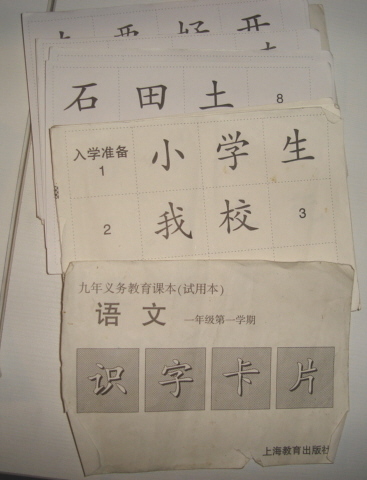 好 开
石 田 土 8
入学准备 小 学 生
1
2 我 校 3
九年义务教育课本(试用本)
语文 一年级第一学期
识 字 卡 片
上海教育出版社